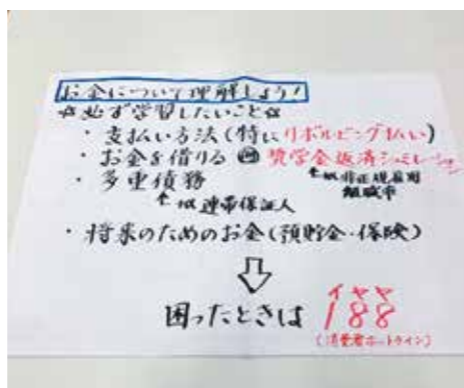 お金について理解しよう！
☆必ず学習したいこと☆
・支払い方法（特にリボルビング払い）
・お金を借りる 例 奨学金返済シュミレーション
・多重債務
↖例 非正規雇用
↑例 連帯保証人
・将来のためのお金（預貯金・保険）
⇩
困ったときは 188
イヤヤ
（消費者ホットライン）